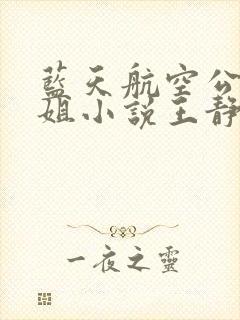 藍天航空公
姐小說王靜
一夜之靈